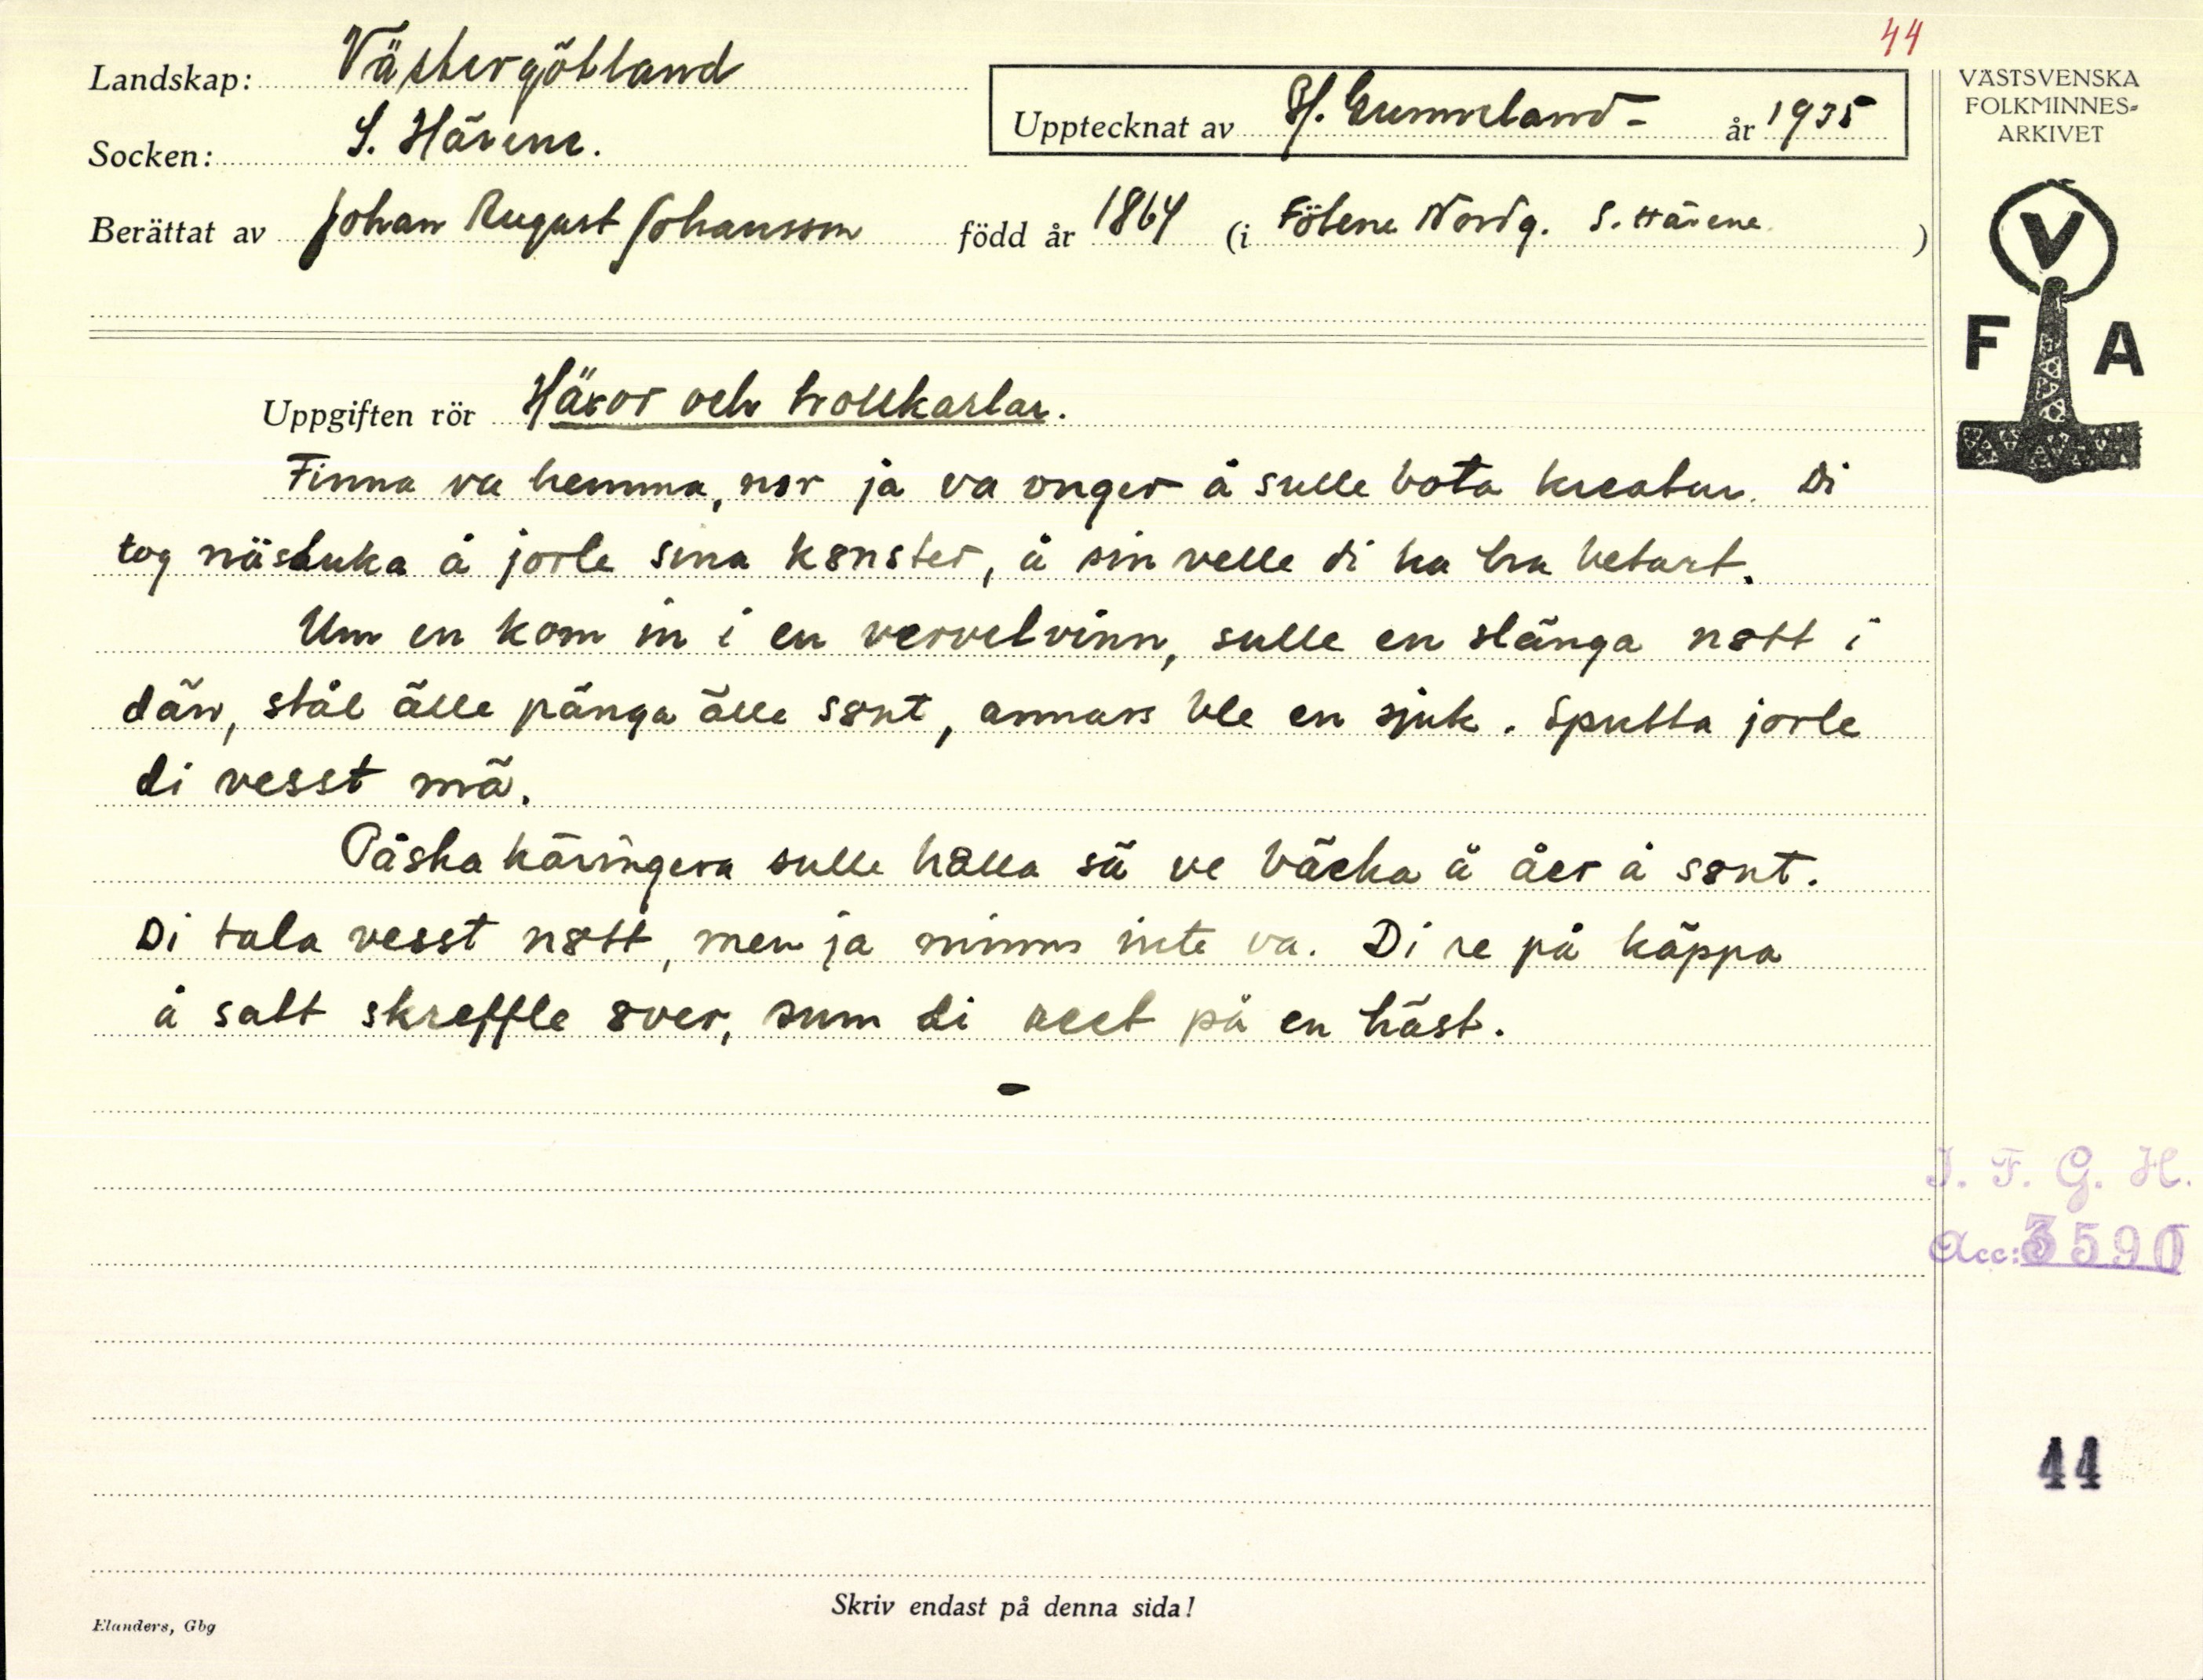 44
Landskap: Västergötland
Socken: S. Härene.
Upptecknat av år 1935
Berättat av Johan August Johansson född år 1864 (i Fölene Nordg. S. Härene )
VÄSTSVENSKA
FOLKMINNES-
ARKIVET
V
F A
Uppgiften rör Häxor och trollkarlar.
Finna va hemma, nör ja va onger å sulle bota kreatur. Di
tog näsduka å jorle sina k8nster, å sin velle di ha bra betart.
Um en kom in i en vervelvinn, sulle en slänga n8tt i
dän, stål älle pänga älle s8nt, annars ble en sjuk. Sputta jorle
di vesst mä.
Påskakäringera sulle hålla sä ve bäcka å åer å s8nt.
Di tala vesst n8tt, men ja minns inte va. Di re på käppa
å satt skreffle 8ver, sum di reet på en häst.
-
I. F. G. H.
Acc: 3590
44
Skriv endast på denna sida!
Elanders, Gbg